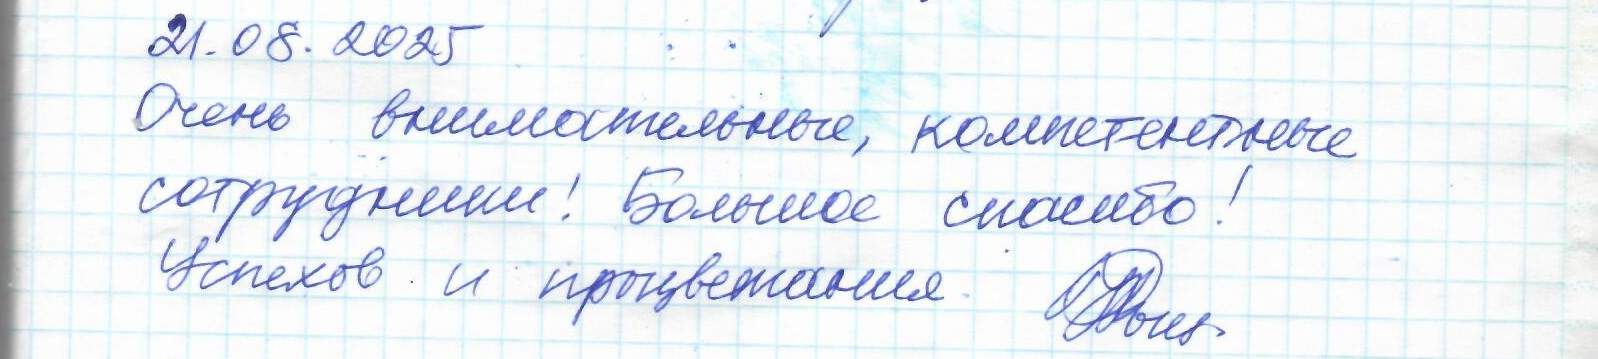 21.08.2025
Очень внимательные, компетентные
сотрудники! Большое спасибо!
Успехов и процветания.